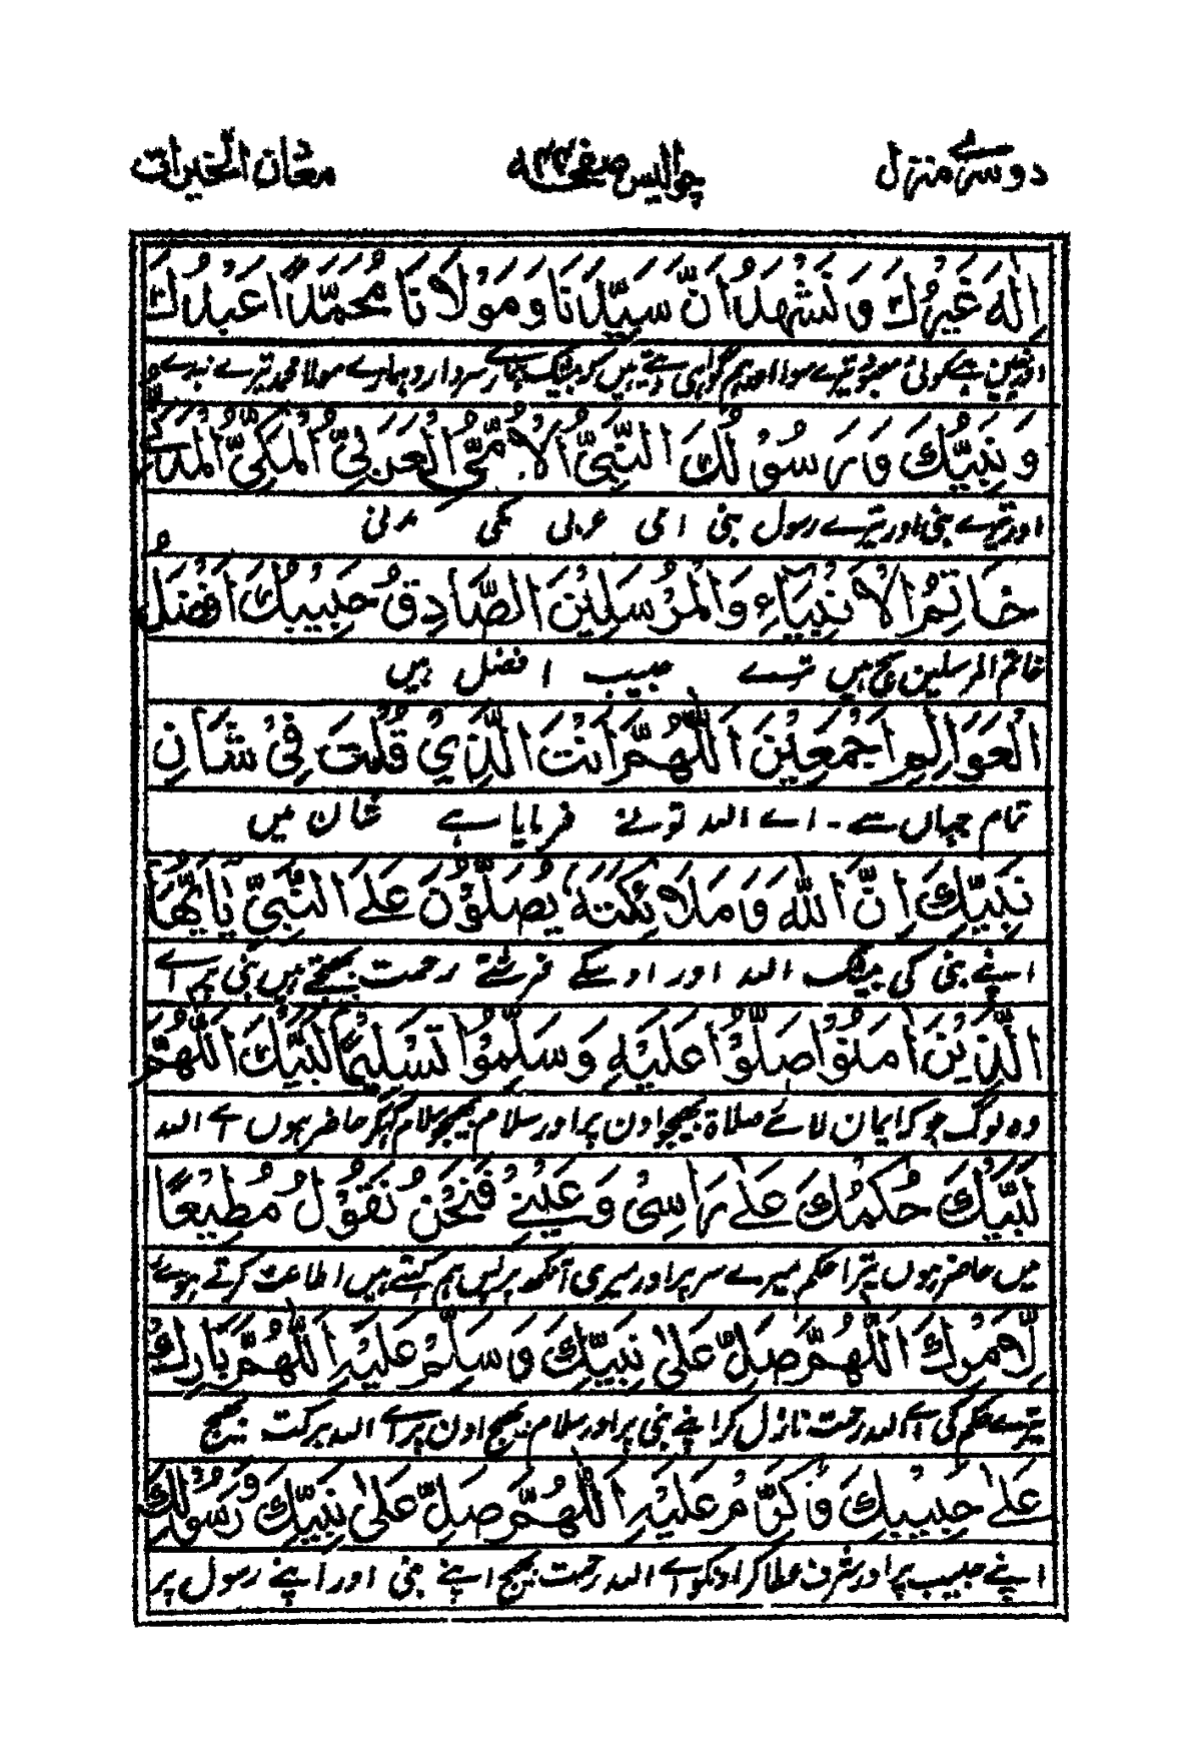 دوسرے منزل چوالیس صفحہ ۴۴ معدن الخیرات
اِلٰهَ غَيْرُكَ وَنَشْهَدُ اَنَّ سَيِّدَنَا وَمَوْلَانَا مُحَمَّدًا عَبْدُكَ
اور نہیں ہے کوئی معبود تیرے سوا اور ہم گواہی دیتے ہیں کہ بیشک ہمارے سردار و ہمارے مولا محمد تیرے بندے
وَنَبِيُّكَ وَرَسُوْلُكَ النَّبِيُّ الْاُمِّيُّ الْعَرَبِيُّ الْمَكِّيُّ الْمَدَنِيُّ
اور تیرے نبی اور تیرے رسول نبی امی عربی مکی مدنی
خَاتِمُ الْاَنْبِيَآءِ وَالْمُرْسَلِيْنَ الصَّادِقُ حَبِيْبُكَ اَفْضَلُ
خاتم المرسلین سچ ہیں ترے حبیب افضل ہیں
الْعَوَالِمِ اَجْمَعِيْنَ اَللّٰهُمَّ اَنْتَ الَّذِيْ قُلْتَ فِيْ شَانِ
تمام جہاں سے۔ اے اللہ تونے فرمایا ہے شان میں
نَبِيِّكَ اِنَّ اللّٰهَ وَمَلَائِكَتَهٗ يُصَلُّوْنَ عَلَى النَّبِيِّ يٰاَيُّهَا
اپنے نبی کی بیشک اللہ اور اوسکے فرشتے رحمت بھیجتے ہیں نبی پر اے
الَّذِيْنَ اٰمَنُوْا صَلُّوْا عَلَيْهِ وَسَلِّمُوْا تَسْلِيْمًا لَبَّيْكَ اَللّٰهُمَّ
وہ لوگ جو کہ ایمان لائے صلاۃ بھیجو اون پر اور سلام بھیجو سلام کہکر حاضر ہوں اے اللہ
لَبَّيْكَ حُكْمُكَ عَلٰى رَاسِيْ وَعَيْنِيْ فَنَحْنُ نَقُوْلُ مُطِيْعًا
میں حاضر ہوں تیرا حکم میرے سر پر اور میری آنکھ پر پس ہم کہتے ہیں اطاعت کرتے ہوئے
لِاَمْرِكَ اَللّٰهُمَّ صَلِّ عَلٰى نَبِيِّكَ وَسَلِّمْ عَلَيْهِ اَللّٰهُمَّ بَارِكْ
تیرے حکم کی اے اللہ رحمت نازل کر اپنے نبی پر اور سلام بھیج اون پر اے اللہ برکت بھیج
عَلٰى حَبِيْبِكَ وَكَرِّمْ عَلَيْهِ اَللّٰهُمَّ صَلِّ عَلٰى نَبِيِّكَ وَرَسُوْلِكَ
اپنے حبیب پر اور شرف عطا کر اونکو اے اللہ رحمت بھیج اپنے نبی اور اپنے رسول پر